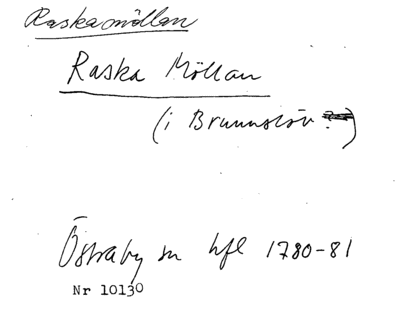 Raskamöllan
Raska Möllan
(i Brunnslöv ?)
Östraby sn hfl 1780-81
Nr 10130